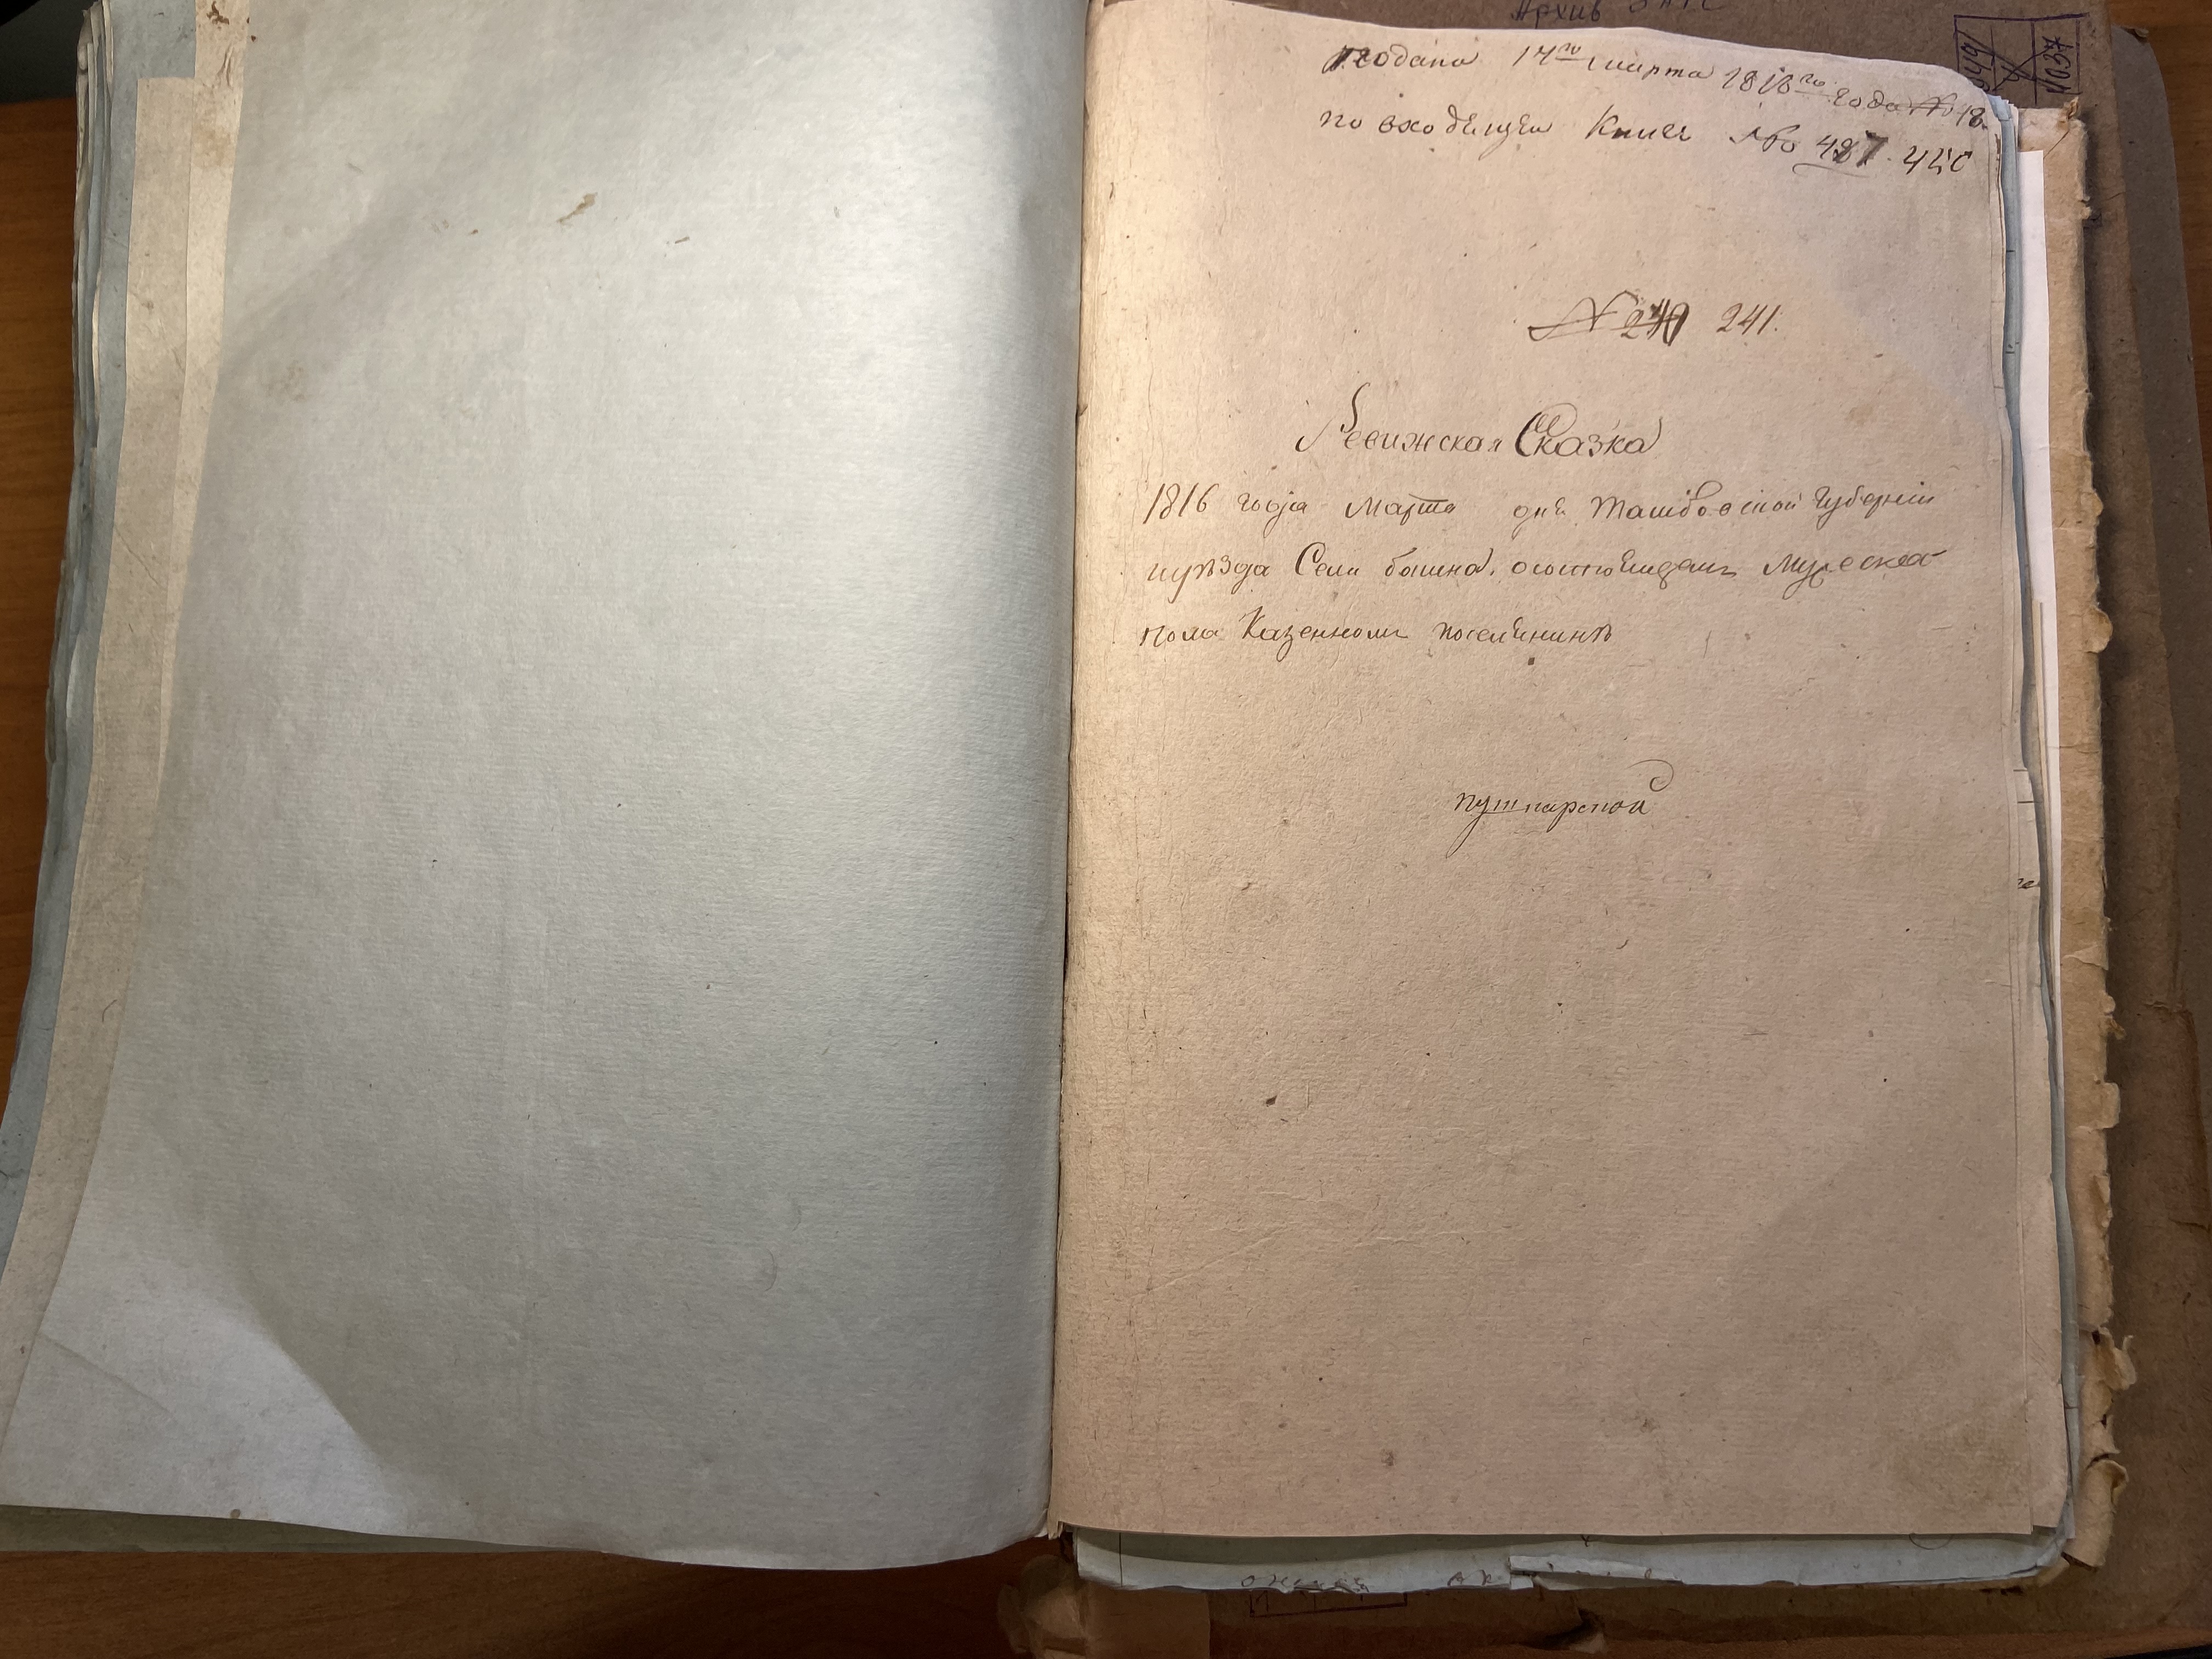 Архив
1037
подана 14го марта 1816го года № 18
по входящей Книге №о 487. 425
№ 240 241.
Ревижская Сказка
1816 года Марта дня Танбовской губернии
иуѣзда Села бонина. осостоящемъ Мужеска
пола Казенномъ поселенинѣ
пушкарской